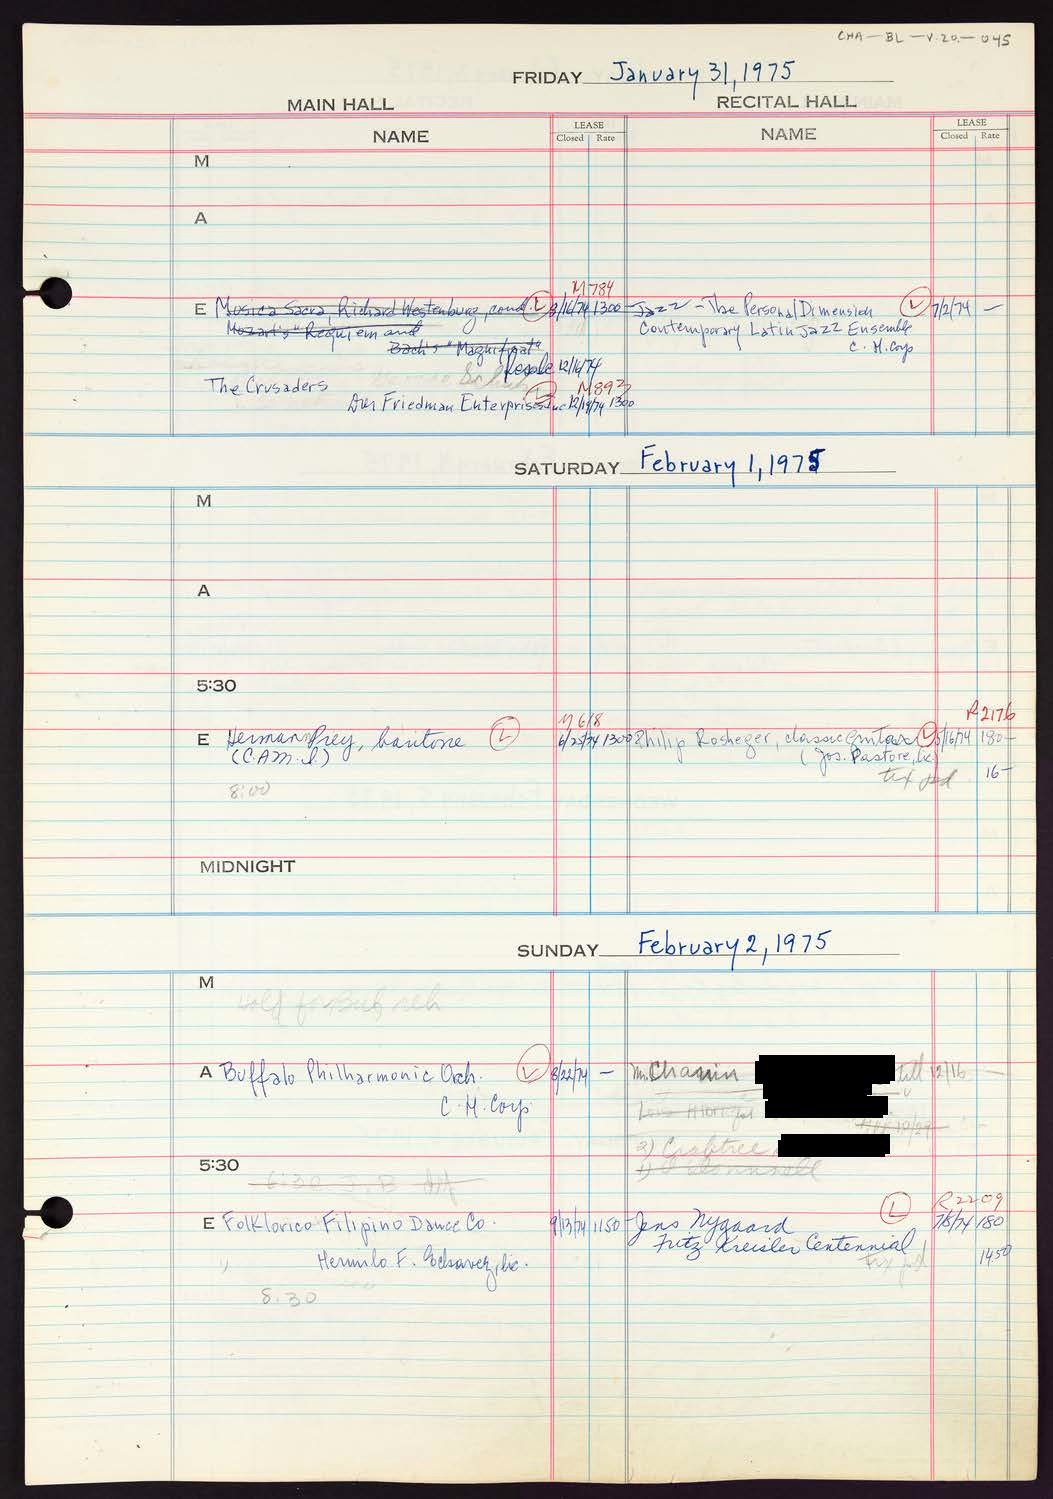 CHA-BL-V.20-045
FRIDAY January 31, 1975
MAIN HALL RECITAL HALL
NAME LEASE Closed Rate NAME LEASE Closed Rate
M
A
M784
E Musica Sacra, Richard Westenburg, cond. L 3/16/74 1300 Jazz - The Personal Dimension L 7/2/74 —
Mozart's "Requiem and Contemporary Latin Jazz Ensemble
Bach's "Magnificat" C.H.Corp
Resale 12/16/74
The Crusaders L M893
Friedman Enterprises Inc 12/19/74 1300
SATURDAY February 1, 1975
M
A
5:30
M618 R2176
E Herman Prey, baritone L 6/25/74 1300 Philip Rosheger, classic guitar L 5/16/74 180-
(C.A.M.I.) (Jos. Pastore, Inc.)
tix pd 16-
8:00
MIDNIGHT
SUNDAY February 2, 1975
M
Hold for Buf reh
A Buffalo Philharmonic Orch. L 8/22/74 — Mr. Chanin till 12/16 —
C.H.Corp
2) Crabtree
5:30
6:30 J.B.
L R2209
E Folklorico Filipino Dance Co. 9/13/74 1150 Jens Nygaard 7/8/74 180
Hermilo F. Inc. Fritz Kreisler Centennial
tix pd 1450
8.30